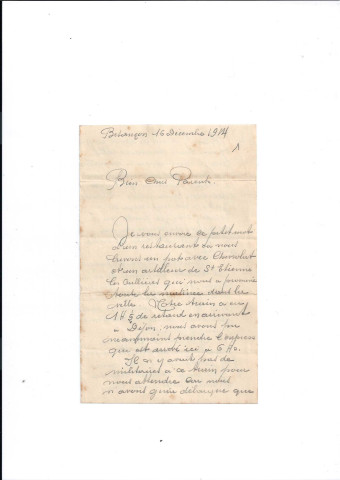 Besançon - 16 Décembre 1914
Bien chers Parents.
Je vous envoie ce petit mot
d'un restaurant ou nous
buvons un pot avec Chavalut
et un artilleur de St Etienne
les tuileries qui nous a promené
toute la matinée dans la
ville. Notre train a eu
1 H ½ de retard en arrivant
a Dijon, nous avons pu
néanmoins prendre l'express
qui est arrivé ici a 6 H.
Il n'y avait pas de
militaires a ce train pour
nous attendre
n'avons que